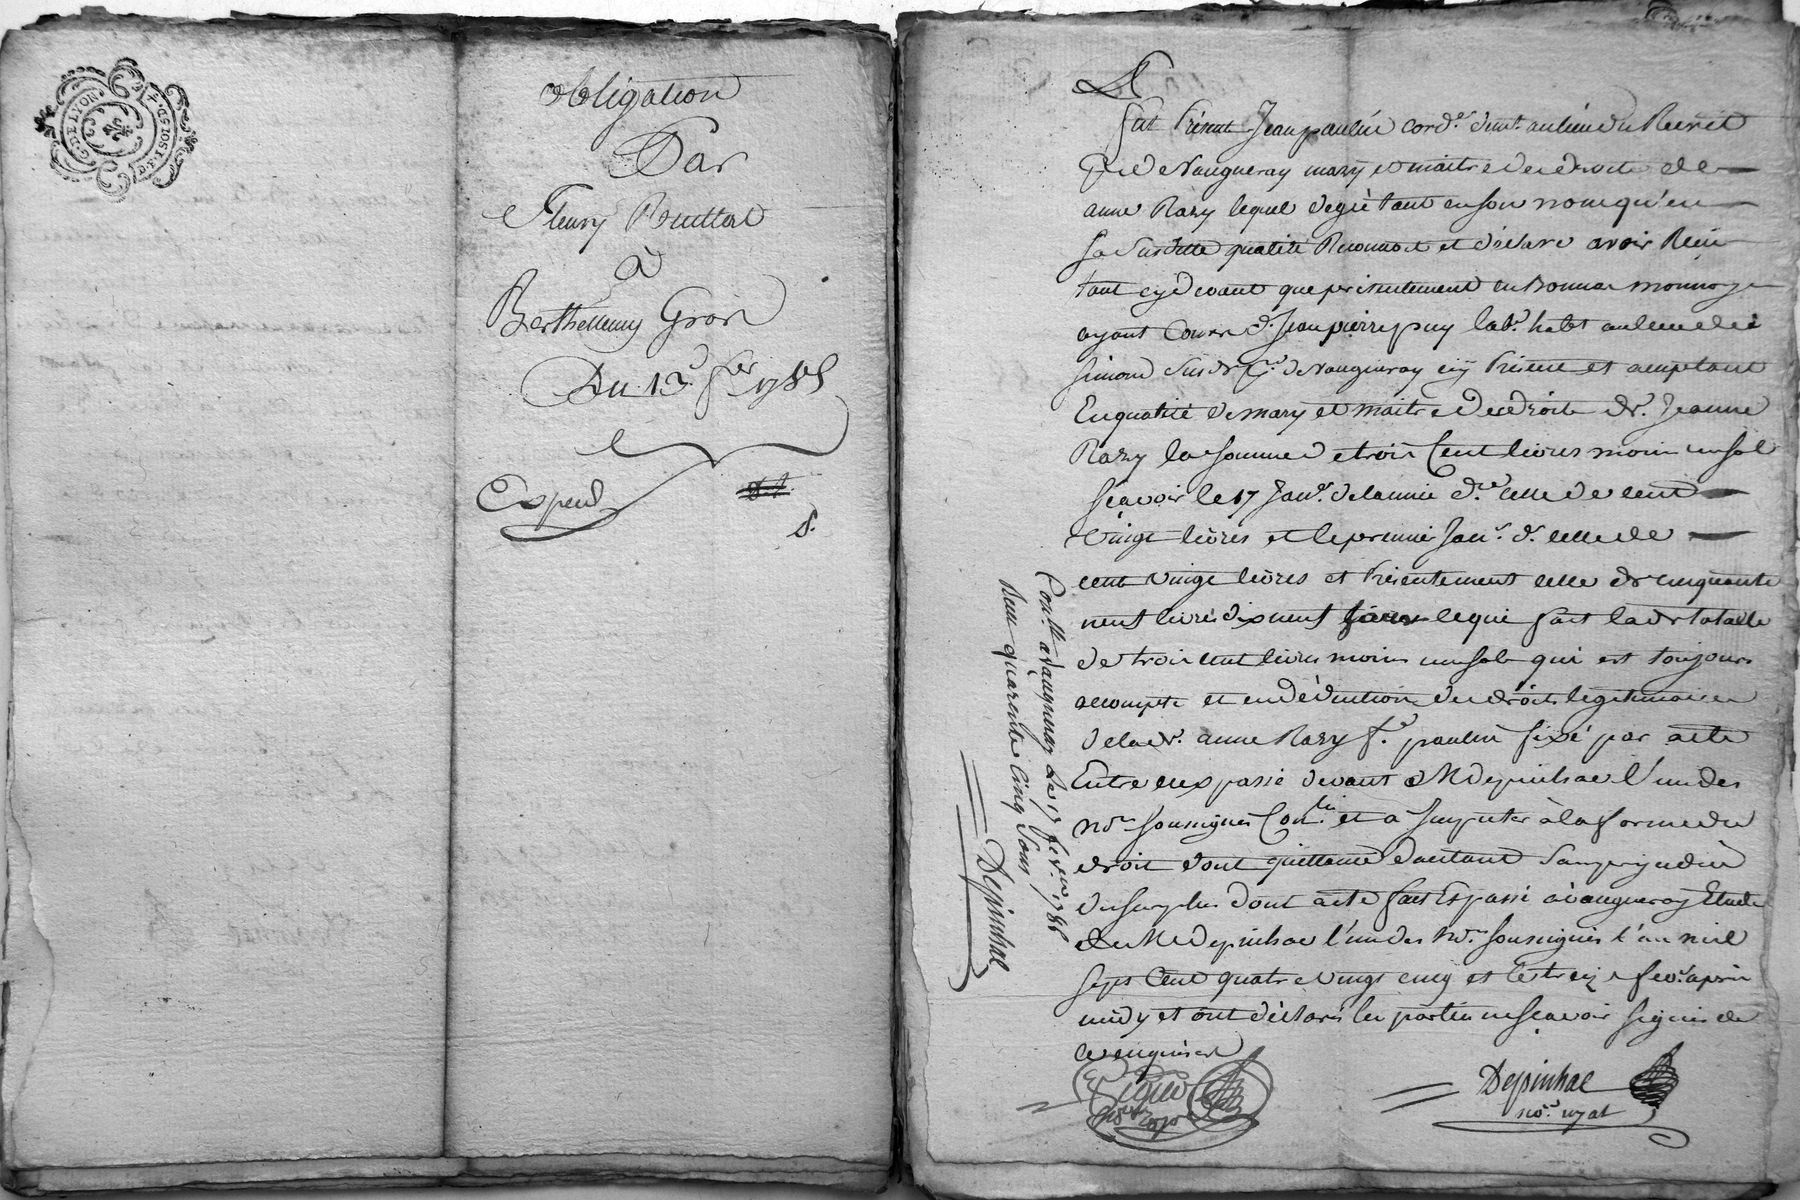 G. DE LYON
obligation
Par
Fleury
à
Berthellemy
Du 13e fer 1785
Exped
fut Présent Jean paulin cord.r demt. au lieu du
de Vaugneray mary et maitre des droits de
anne Razy lequel de gré tant en son nom qu'en
sa susditte qualité Reconnoit et déclare avoir Reçu
tant cy devant que présentement en bonnes monnoye
ayant Cours de Jean pierre puy lab.r habt au lieu de la
simond susde de Vaugneray cy Présent et acceptant
En qualité de mary et maitre des droits de Jeanne
Razy la somme de trois Cent livres moins un sol
sçavoir le 17 Janr. de l'année dre celle de cent
vingt livres et le premier Janr. dr celle de
cent vingt livres et Présentement celle de cinquante
neuf livres dix neuf sous ce qui fait la de totalle
de trois cent livres moins un sol qui est toujours
acompte et en déduction des droits légitimaires
de lade. anne Razy fe. paulin fixé par acte
Entre eux passé devant Me Depinhac l'un des
nores soussignés Con.lé et à imputer à la forme du
droit dont quittance d'autant sans préjudice
du surplus dont acte fait Et passé à vaugneray Etude
de Me Depinhac l'un des nores soussignés l'an mil
sept Cent quatre vingt cinq et le treize fevr. après
midy et ont déclaré les parties ne sçavoir signer de
ce enquises
Depinhac
nore. royal
Conllé à Vaugneray Le 17 fevrer 1785
Reçu quarente Cinq Sous
Depinhac